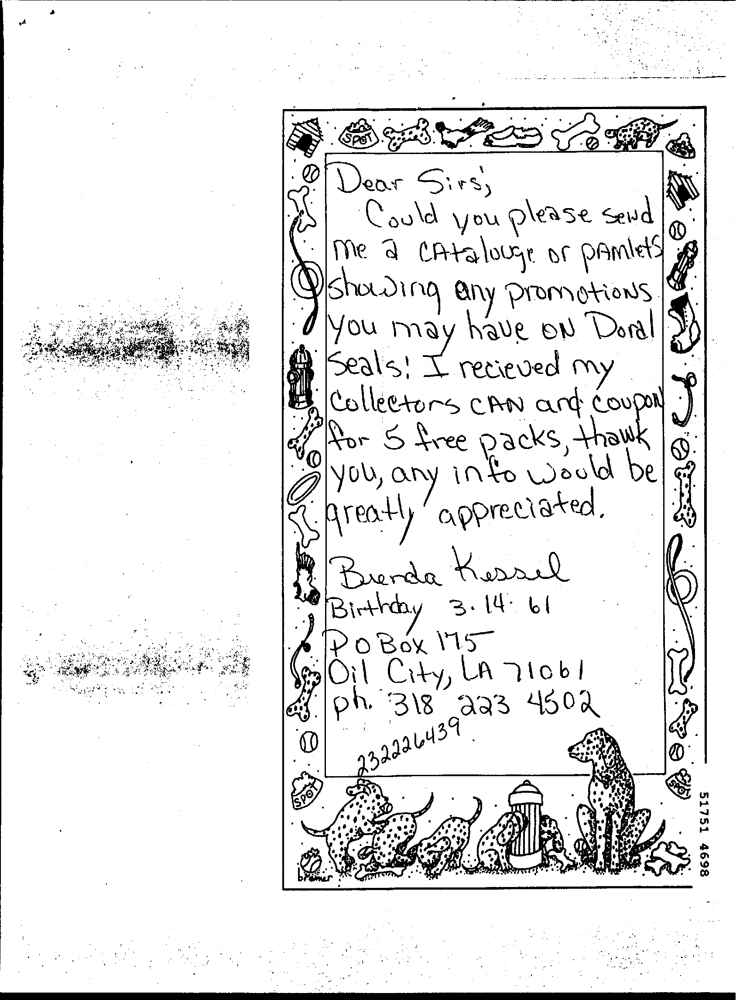 SPOT
Dear Sirs,
Could you please send
me a catalouge or pamlets
showing any promotions
you may have on Doral
Seals! I recieved my
Collectors can and coupon
for 5 free packs, thank
you, any info would be
greatly appreciated.
Brenda Kessel
Birthday 3. 14. 61
P O Box 175
Oil City, LA 71061
ph. 318 223 4502
232226439
SPOT
SPOT
bramer
51751 4698